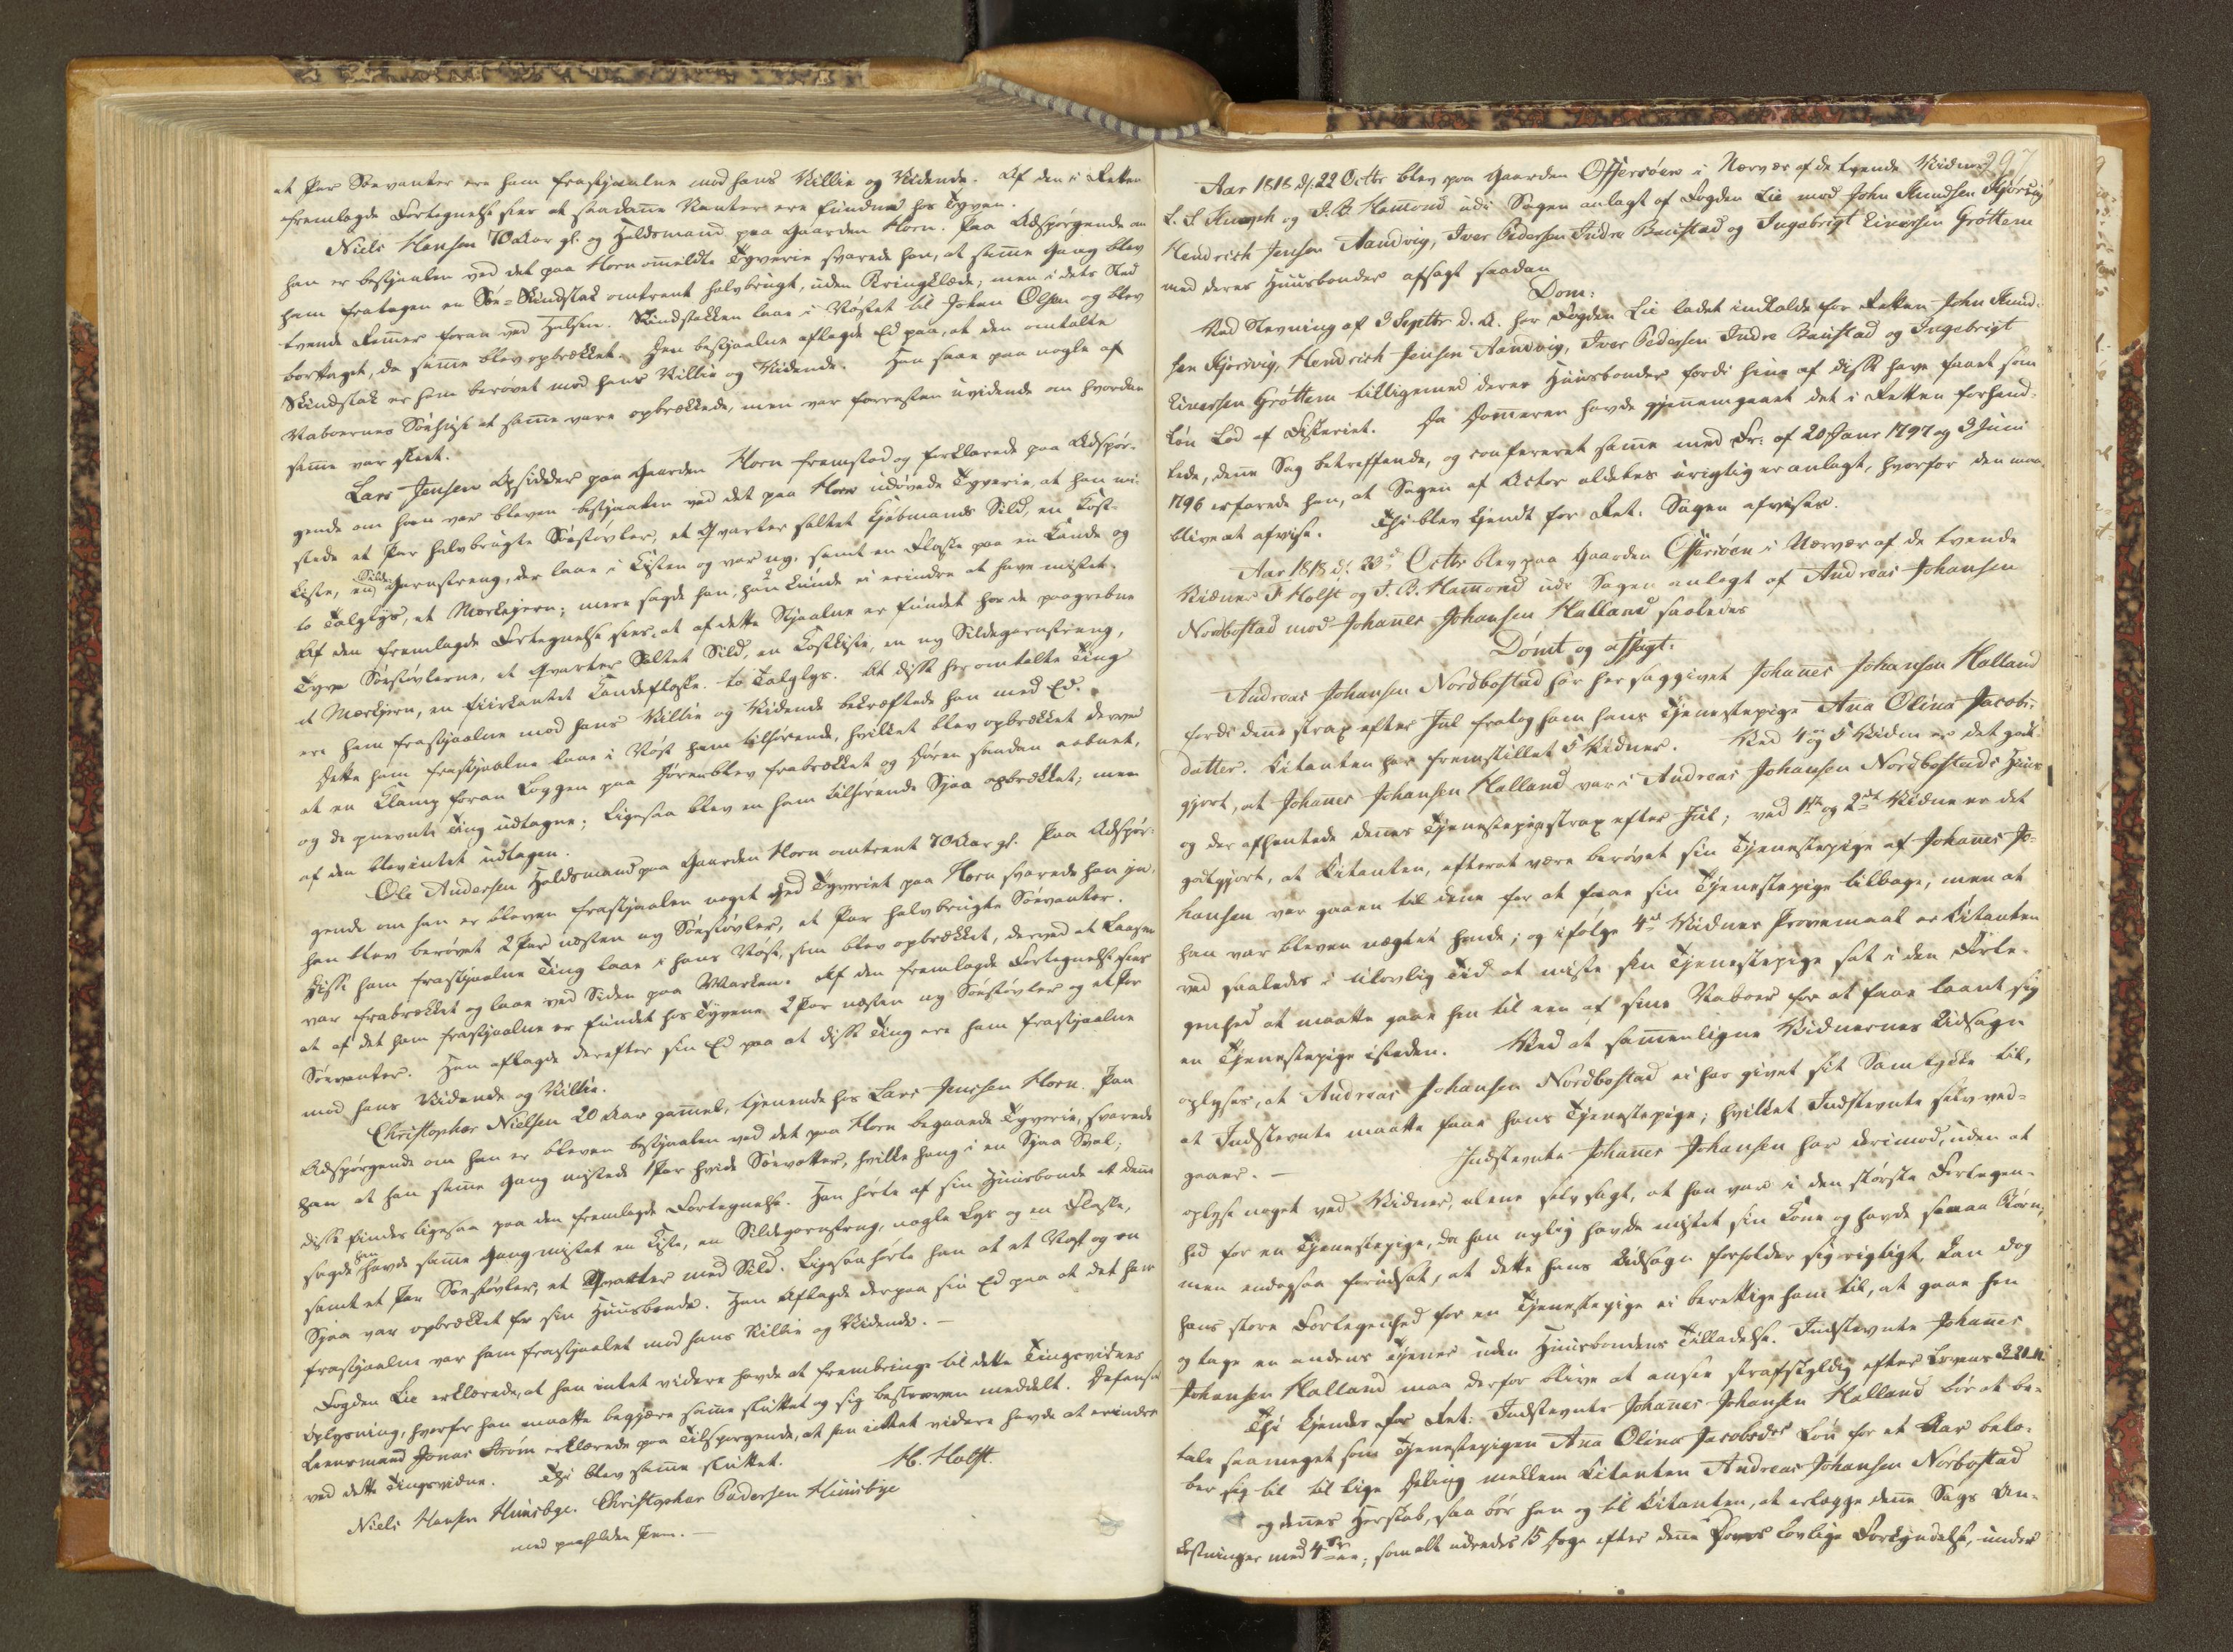 et Par Søevanter ere ham frastjaalne mod hans Villie og Vidende. Af den i Retten
fremlagde Fortegnelse sees at saadañe Vanter ere fundne hos Tyven.
Niels Hansen 70 Aar gl. og Holdsmand paa Gaarden Horn. Paa Adspørgende om
han er bestjaalen ved det paa Horn omeldte Tyverie svarede han, at sam̃e Gang blev
ham fratagen en Søe-Skindstak omtrent halvbrugt, uden Kringklæde, men i dets Sted
tvende Rem̃er foran ved Halsen. Skindstakken laae i Nøstet til Johan Olsen og blev
borttaget, da sam̃e blev opbrækket. Den bestjaalne aflagde Ed paa, at den omtalte
Skindstak er ham berøvet mod hans Villie og Vidende. Han saae paa nogle af
Naboernes Søehuse at sam̃e vare opbrækkede, men var forresten uvidende om hvordan
sam̃e var skeet.
Lars Jensen Opsidder paa Gaarden Horn fremstod og forklarede paa Adspør-
gende om han var bleven bestjaalen ved det paa Horn udøvede Tyverie, at han mi-
stede et Par halvbrugte Søestøvler, et Qvarter saltet Kjøbmands Sild, en Kost-
kiste, en Silde Garnstreng, der laae i Kisten og var ny, samt en Flaske paa en Kande og
to Talglys, et Mærkejern; mere sagde han, han kunde ei erindre at have mistet.
Af den fremlagde Fortegnelse sees, at af dette Stjaalne er fundet hos de paagrebne
Tyve Søestøvlerne, et Qvarter Saltet Sild, en Kostkiste, en ny Sildegarnstreng,
et Mærkjern, en fiirkantet Kandeflaske. to Talglys. At disse her omtalte Ting
ere ham frastjaalne mod hans Villie og Vidende bekræftede han med Ed.
Dette ham frastjaalne laae i Nøst ham tilhørende, hvilket blev opbrækket derved
at en Klamp foran Loggen paa Døren blev frabrækket og Døren saadan aabnet,
og de pnevnte Ting udtagne; Ligesaa blev en ham tilhørende Sjaa opbrækket; men
af den blev intet udtagen.
Ole Andersen Holdsmand paa Gaarden Horn omtrent 70 Aar gl. Paa Adspør-
gende om han er bleven frastjaalen noget ved Tyveriet paa Horn svarede han ja,
han blev berøvet 2 Par næsten ny Søestøvler, et Par halvbrugte Søevanter.
Disse ham frastjaalne Ting laae i hans Nøst, som blev opbrækket, derved at Laasen
var frabrækket og laae ved Siden paa Marken. Af den fremlagde Fortegnelse sees
at af det ham frastjaalne er fundet hos Tyvene 2 Par næsten ny Søestøvler og et Par
Søevanter. Han aflagde derefter sin Ed paa at disse Ting ere ham frastjaalne
mod hans Vidende og Villie.
Christopher Nielsen 20 Aar gam̃el, tjenende hos Lars Jensen Horn. Paa
Adspørgende om han er bleven bestjaalen ved det paa Horn begaaede Tyverie, svarede
han at han sam̃e Gang mistede 1 Par hvide Søevotter, hvilke hang i en Sjaa Sval;
disse findes ligesaa paa den fremlagde Fortegnelse. Han hørte af sin Huusbonde at deñe
sagde han havde sam̃e Gang mistet en Kiste, en Sildegarnstreng, nogle Lys og en Flaske,
samt et Par Søestøvler, et Qvarter med Sild. Ligesaa hørte han at et Nøst og en
Sjaa var opbrækket for sin Huusbonde. Han Aflagde derpaa sin Ed paa at det ham
frastjaalne var ham frastjaalet mod hans Villie og Vidende. —
Fogden Lie erklærede, at han intet videre havde at frembringe til dette Tingsvidnes
Oplysning, hvorfor han maatte begjære sam̃e sluttet og sig beskreven meddelt. Defensor
Leensmand Jonas Strøm erklærede paa Tilspørgende, at han intet videre havde at erindre
ved dette Tingsvidne. Thi blev sam̃e sluttet. H. Holst.
Niels Hansen Huusbye. Christopher Pedersen Huusbye
med paaholden Pen. —
297
Aar 1818 d. 22 Octbr blev paa Gaarden Offersøen i Nærvær af de tvende Vidner
L. S. og J. B. Ham̃ond udi Sagen anlagt af Fogden Lie mod John Knudsen Kjørsvig
Hendrich Jensen Aandvig, Iver Pedersen Indre Baustad og Ingebrigt Einersen Grøttem
med deres Huusbonder afsagt saadan
Dom:
Ved Stevning af 3 Septbr d. A. har Fogden Lie ladet indkalde for Retten John Knud-
sen Kjørsvig, Hendrich Jensen Aandvig, Iver Pedersen Indre Baustad og Ingebrigt
Einersen Grøttem tilligemed deres Huusbonder fordi hine af disse have faaet som
Løn Lod af Fiskeriet. Da Dom̃eren havde gjen̄emgaaet det i Retten forhand-
lede, deñe Sag betreffende, og confereret sam̃e med Fr: af 20 Janr 1797 og 3 Juni
1796 erfarede han, at Sagen af Actor aldeles urigtig er anlagt, hvorfor den maa
blive at afvise. Thi blev kjendt for Ret: Sagen afvises.
Aar 1818 d. 23d Octbr blev paa Gaarden Offersøen i Nærvær af de tvende
Vidner P. Holst og J. B. Ham̃ond udi Sagen anlagt af Andreas Johansen
Nordbostad mod Johañes Johansen Halland saaledes
Dømt og afsagt:
Andreas Johansen Nordbostad har her saggivet Johañes Johansen Halland
fordi deñe strax efter Jul fratog ham hans Tjenestepige Ana Olina Jacobs-
datter. Citanten har fremstillet 5 Vidner. Ved 4de og 5 Vidne er det god-
gjort, at Johañes Johansen Halland var i Andreas Johansen Nordbostads Huus
og der afhentede deñes Tjenestepige strax efter Jul; ved 1ste og 2det Vidne er det
godtgjort, at Citanten, efterat være berøvet sin Tjenestepige af Johañes Jo-
hansen var gaaen til deñe for at faae sin Tjenestepige tilbage, men at
han var bleven nægtet hende; og ifølge 4de Vidnes Provemaal er Citanten
ved saaledes i ulovlig Tid at miste sin Tjenestepige sat i den Forle-
genhed at maatte gaae hen til een af sine Naboer for at faae laant sig
en Tjenestepige isteden. Ved at sam̃enligne Vidnernes Udsagn
oplyses, at Andreas Johansen Nordbostad ei har givet sit Samtykke til,
at Indstevnte maatte faae hans Tjenestepige; hvilket Indstevnte selv ved-
gaaer. — Indstevnte Johañes Johansen har derimod, uden at
oplyse noget ved Vidner, alene selv sagt, at han var i den største Forlegen-
hed for en Tjenestepige, da han nylig havde mistet sin Kone og havde smaa Børn;
men endogsaa forudsat, at dette hans Udsagn forholder sig rigtigt, kan dog
hans store Forlegenhed for en Tjenestepige ei berettige ham til, at gaae hen
og tage en andens Tjener uden Huusbondens Tilladelse. Indstevnte Johañes
Johansen Halland maa derfor blive at ansee strafskyldig efter Lovens
Thi kjendes for Ret: Indstevnte Johañes Johansen Halland bør at be-
tale saameget som Tjenestepigen Ana Olina Jacobsdr Løn for et Aar belø-
ber sig til til lige Deling mellem Citanten Andreas Johansen Norbostad
og deñes Herskab, saa bør han og til Citanten, at erlægge deñe Sags Om-
kostninger med 4 som alt udredes 15 Dage efter deñe Doms lovlige Forkyndelse, under